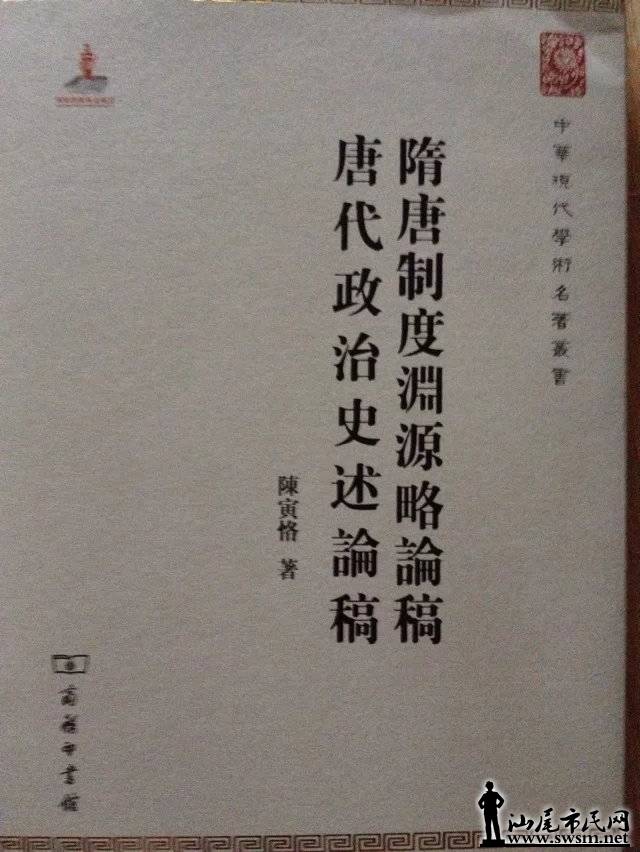 中華現代學術名著叢書
隋唐制度淵源略論稿
唐代政治史述論稿
陳寅恪 著
商務印書館
汕尾市民网
www.swsm.net